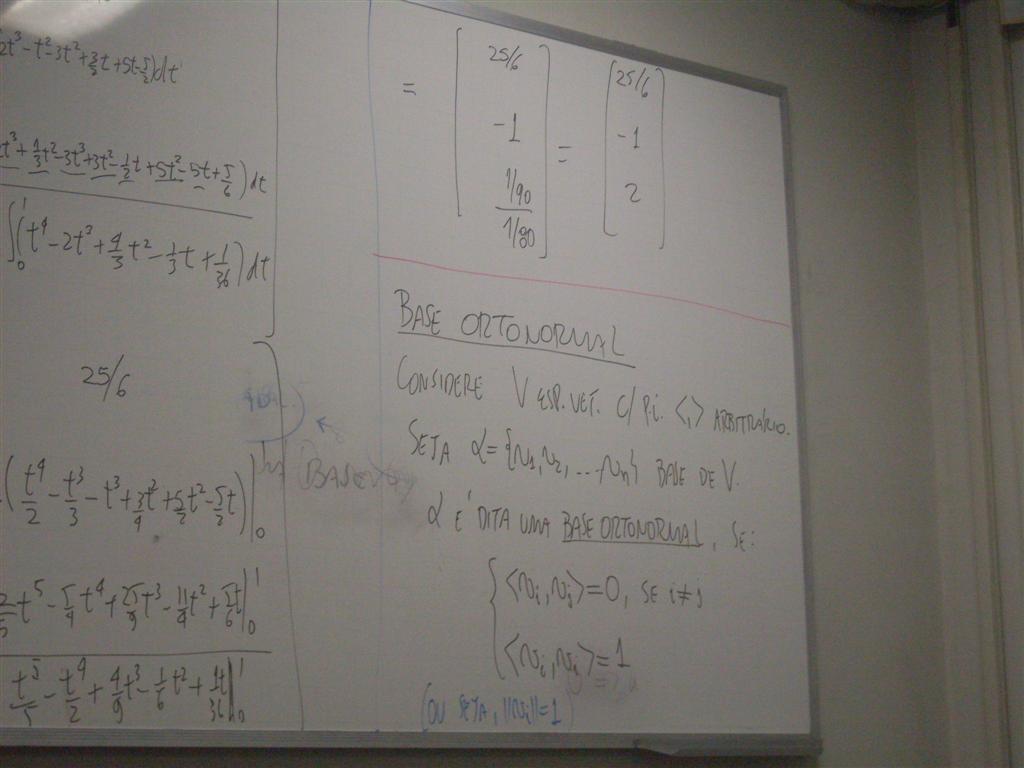 2t³-t²-3t²+3/2t+5t-5/2)dt
t³+4/3t²-3t³+3t²-1/2t+5t²-5t+5/6)dt
∫₀¹(t⁴-2t³+4/3t²-1/3t+1/36)dt
25/6
(t⁴/2-t³/3-t³+3/4t²+5/2t²-5/2t)|₀
2/5t⁵-5/4t⁴+25/9t³-11/4t²+5/6t|₀¹
t⁵/5-t⁴/2+4/9t³-1/6t²+1/36t|₀¹
= [25/6 -1 (1/90)/(1/80)] = [25/6 -1 2]
BASE ORTONORMAL
CONSIDERE V ESP. VET. C/ P.I. <,> ARBITRÁRIO.
SEJA α={v₁,v₂,...vₙ} BASE DE V.
α É DITA UMA BASE ORTONORMAL, SE:
<vᵢ,vⱼ>=0, SE i≠j
<vᵢ,vᵢ>=1
(OU SEJA, ||vᵢ||=1)